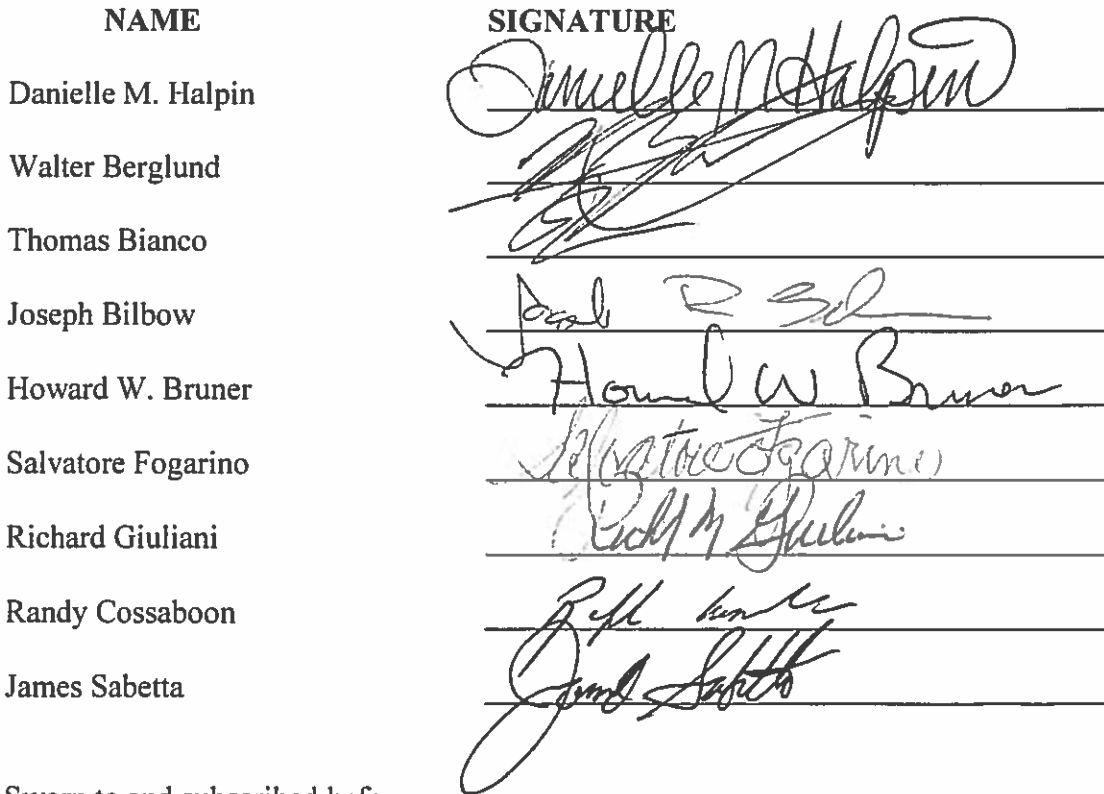 NAME SIGNATURE
Danielle M. Halpin Danielle M Halpin
Walter Berglund
Thomas Bianco
Joseph Bilbow Joseph R
Howard W. Bruner Howard W Bruner
Salvatore Fogarino Salvatore Fogarino
Richard Giuliani Richard M Giuliani
Randy Cossaboon
James Sabetta James Sabetta
Sworn to and subscribed before